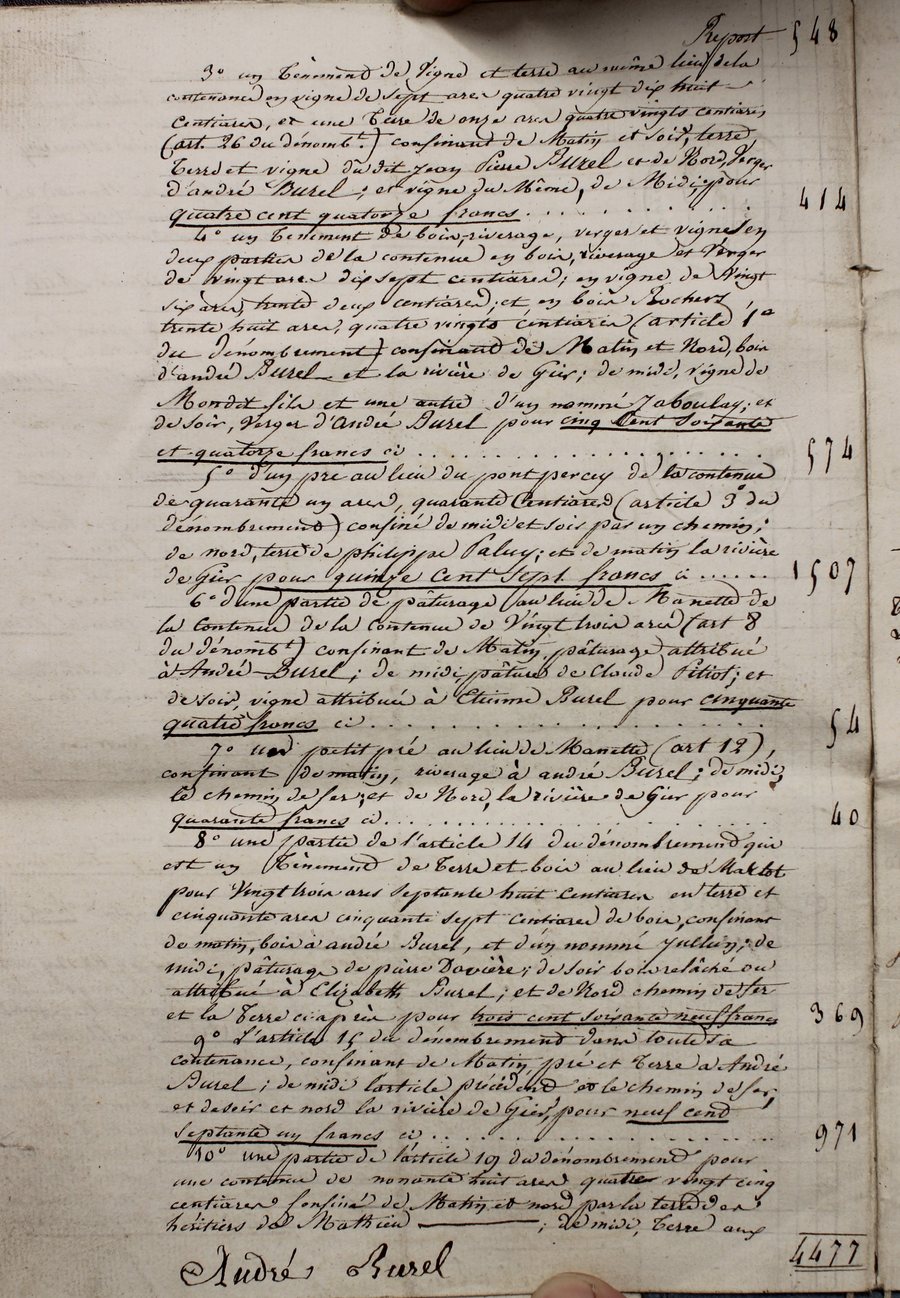 Report 548
3° un tênement de Vigne et terre au même lieu de la
contenance en vigne de sept ares quatre vingt dix huit
Centiares, et une Terre de onze ares quatre vingts centiares
(art. 26 du dénombt.) confinant de Matin et soir, terre
Terre et vigne du dit Jean Pierre Burel et de Nord, Verger
d'andré Burel ; et vigne du Même, de Midi, pour
quatre cent quatorze francs . . . . . . . . . . 414
4° un tenement de bois, riverage, verger et vignes en
deux parties de la contenue en bois, riverage et Verger
de vingt ares dix sept centiares ; en vigne de Vingt
six ares, trente deux centiares ; et en bois Rochers
trente huit ares, quatre vingts centiares (article 1er
du dénombrement) confinant de Matin et Nord, bois
d'andré Burel et la rivière de Gier ; de midi, vigne de
Mondit fils et une autre d'un nommé Jaboulay ; et
de soir, Verger d'André Burel pour cinq Cent Soixante
et quatorze francs ci . . . . . . . . . . 574
5° d'un pré au lieu du pont percey de la contenue
de quarante un ares, quarante Centiares (article 3° du
dénombrement) confiné de midi et soir par un chemin ;
de nord, terre de philippe Paluy ; et de matin la rivière
de Gier pour quinze Cent Sept francs ci . . . . . . 1507
6° d'une partie de pâturage au lieu de Manette de
la Contenue de la contenue de Vingt trois ares (art 8
du dénombt) confinant de Matin, pâturage attribué
à André Burel ; de midi, pâture de Claude Pitiot ; et
de soir, vigne attribuée à Etienne Burel pour cinquante
quatre francs ci . . . . . . . . . . 54
7° un petit pré au lieu de Manette (art 12),
confinant de matin, riverage à andré Burel ; de midi,
le chemin de fer ; et de Nord, la rivière de Gier pour
quarante francs ci . . . . . . . . . . 40
8° une partie de l'article 14 du dénombrement qui
est un Tènement de Terre et bois au lieu de
pour Vingt trois ares Septante huit Centiares en terre et
cinquante ares cinquante sept centiares de bois, confinant
de matin, bois à andré Burel, et d'un nommé Jullien ; de
midi, pâturage de pierre Davière ; de soir bois relâché ou
attribué à Elizabeth Burel ; et de Nord chemin de fer
et la Terre ci après pour trois cent soixante neuf francs 369
9° L'article 15 du dénombrement dans toute sa
contenance, confinant de Matin, pré et Terre à André
Burel ; de midi l'article précédent et le chemin de fer,
et de soir et nord la rivière de Gier, pour neuf cent
septante un francs ci . . . . . . . . . . 971
10° une partie de l'article 19 du dénombrement pour
une contenue de nonante huit ares quatre vingt cinq
centiares confiné de Matin et nord par la terre des
héritiers de Mathieu ———— ; de midi, Terre aux
4477
André Burel